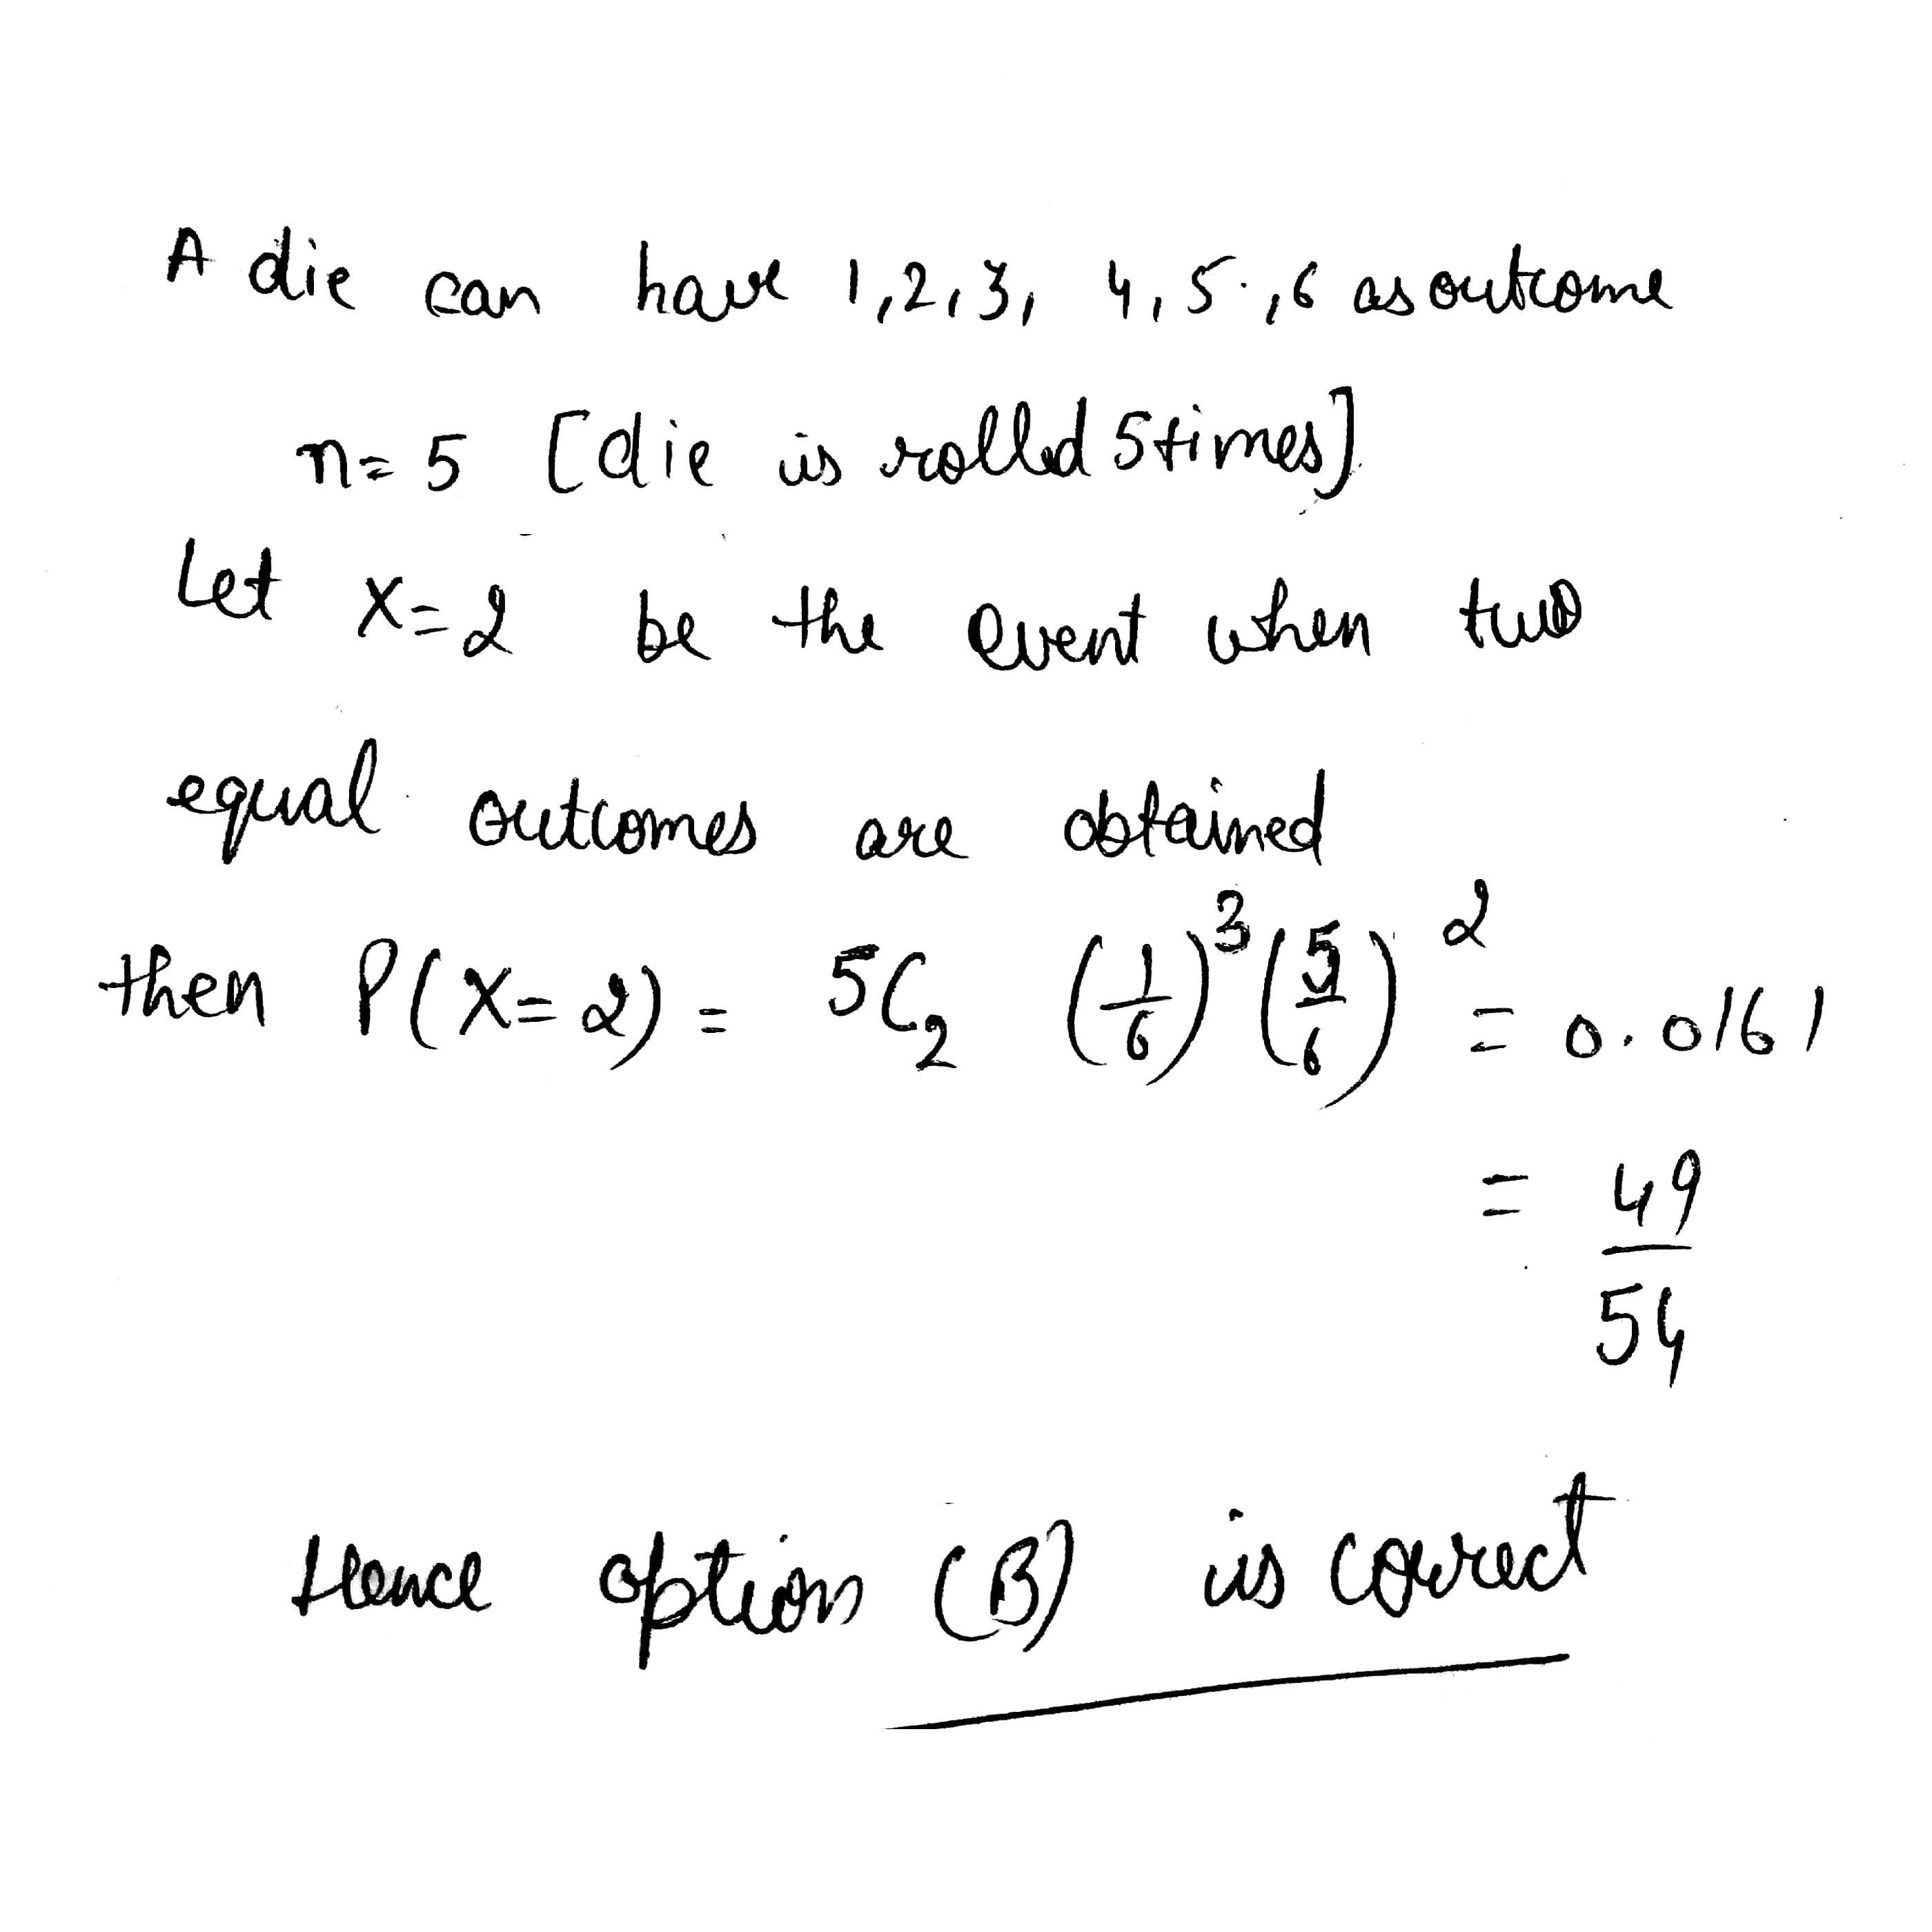 A die can have 1,2,3, 4,5.,6 as outcome
n=5 [die is rolled 5times].
Let X=2 be the event when two
equal outcomes are obtained
then P(X=2) = 5C₂ (1/6)³(5/6)² = 0.0161
= 49/54
Hence option (B) is correct